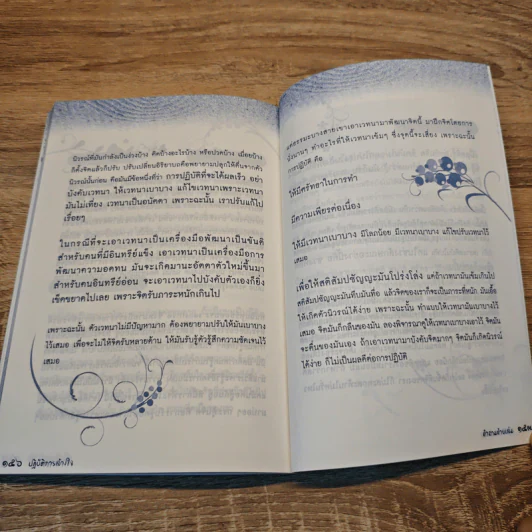 นิวรณ์ที่มันกำลังเป็นง่วงบ้าง คิดบ้างอะไรบ้าง หรือปวดบ้าง เมื่อยบ้าง
ก็ตั้งจิตแล้วก็ปรับ ปรับเปลี่ยนอิริยาบถคือพยายามปลุกให้ตื่นจากตัว
นิวรณ์นั้นก่อน คือมันมีข้อหนึ่งที่ว่า การปฏิบัติที่จะได้ผลเร็ว อย่า
บังคับเวทนา ให้เวทนาเบาบาง แก้ไขเวทนาเพราะเวทนา
มันไม่เที่ยง เวทนาเป็นอนัตตา เพราะฉะนั้น เราปรับแก้ไป
เรื่อยๆ
ในกรณีที่จะเอาเวทนาเป็นเครื่องมือพัฒนาเป็นขันติ
สำหรับคนที่มีอินทรีย์แข็ง เอาเวทนาเป็นเครื่องมือการ
พัฒนาความอดทน มันจะเกิดมานะอัตตาตัวใหม่ขึ้นมา
สำหรับคนอินทรีย์อ่อน จะเอาเวทนาไปบังคับตัวเองก็ยิ่ง
เข็ดขยาดไปเลย เพราะจิตรับภาระหนักเกินไป
เพราะฉะนั้น ตัวเวทนาไม่มีปัญหามาก ต้องพยายามปรับให้มันเบาบาง
ไว้เสมอ เพื่อจะไม่ให้จิตรับหลายด้าน ให้มันรับรู้ตัวรู้สึกความชัดเจนไว้
เสมอ
๑๕๖ ปฏิบัติการล้างใจ
ธรรมะบางสายเขาเอาเวทนามาพัฒนาจิตนี้ มาฝึกจิตโดยการ
นั่งนานๆ ทำอะไรที่ให้เวทนาเข้มๆ ซึ่งจุดนี้จะเสี่ยง เพราะฉะนั้น
การปฏิบัติ คือ
ให้มีศรัทธาในการทำ
มีความเพียรต่อเนื่อง
ให้มีเวทนาเบาบาง มีโลภน้อย มีเวทนาเบาบาง แก้ไขปรับเวทนาไว้
เสมอ
เพื่อให้สติสัมปชัญญะมันโปร่งโล่ง แต่ถ้าเวทนามันเข้มเกินไป
สติสัมปชัญญะมันทึบมันทื่อ แล้วจิตของเราก็จะเป็นภาระที่หนัก มันเอื้อ
ให้เกิดตัวนิวรณ์ได้ง่าย เพราะฉะนั้น ทำแบบให้เวทนามันเบาบางไว้
เสมอ จิตมันก็กลืนของมัน ลองพิจารณาดูให้เวทนาเบาบางเอาไว้ จิตมัน
จะตื่นของมันเอง ถ้าเอาเวทนามาบังคับจิตมากๆ จิตมันก็เกิดนิวรณ์
ได้ง่าย ก็ไม่เป็นผลดีต่อการปฏิบัติ